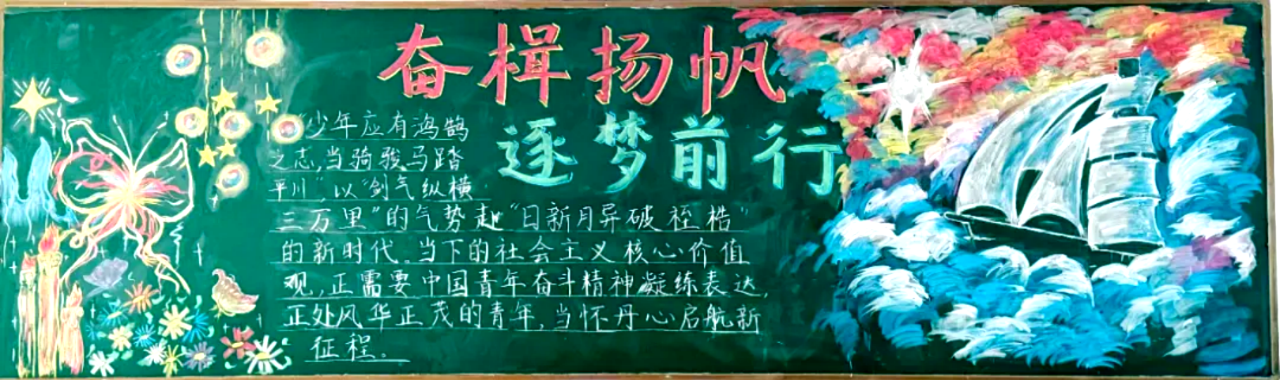 奋楫扬帆
逐梦前行
“少年应有鸿鹄
之志,当骑骏马踏
平川”,以“剑气纵横
三万里”的气势赴“日新月异破桎梏”
的新时代。当下的社会主义核心价值
观,正需要中国青年奋斗精神凝练表达,
正处风华正茂的青年,当怀丹心启航新
征程。